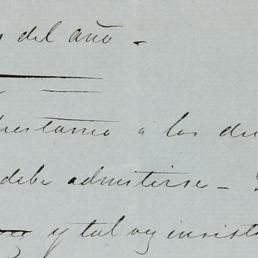 del año -
prestamo á los
debe admitirse -
y tal vez insist